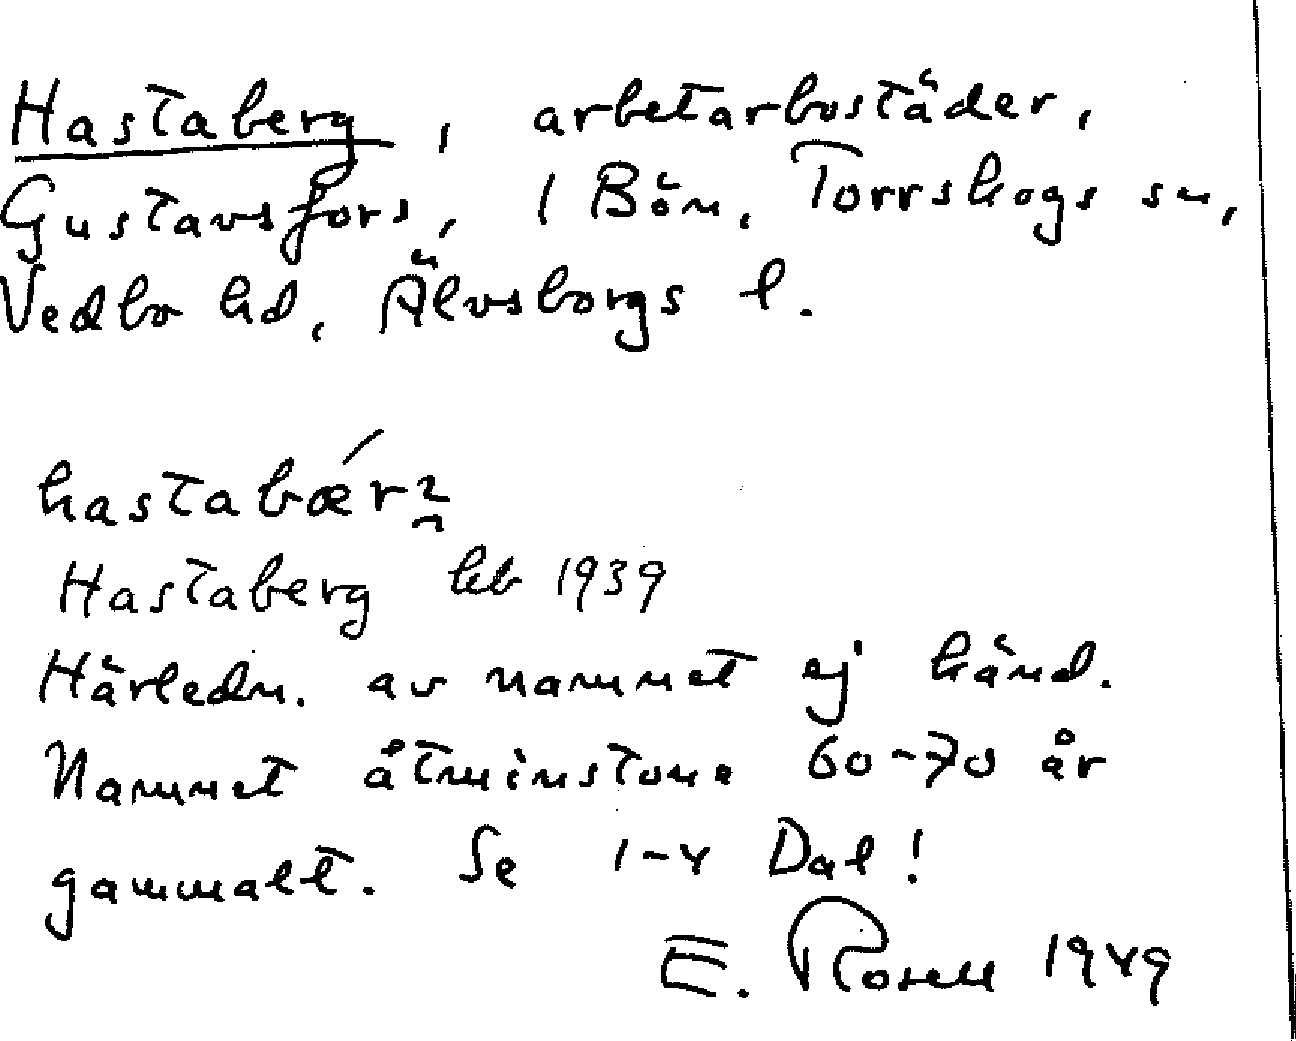 Hastaberg, arbetarbostäder,
Gustavsfors, 1 Bön, Torrskogs sn,
Vedbo hd, Älvsborgs l.
hastabær
Hastaberg kb 1939
Härledn. av namnet ej känd.
Namnet åtminstone 60-70 år
gammalt. Se 1-4 Dal!
E. Rosell 1949